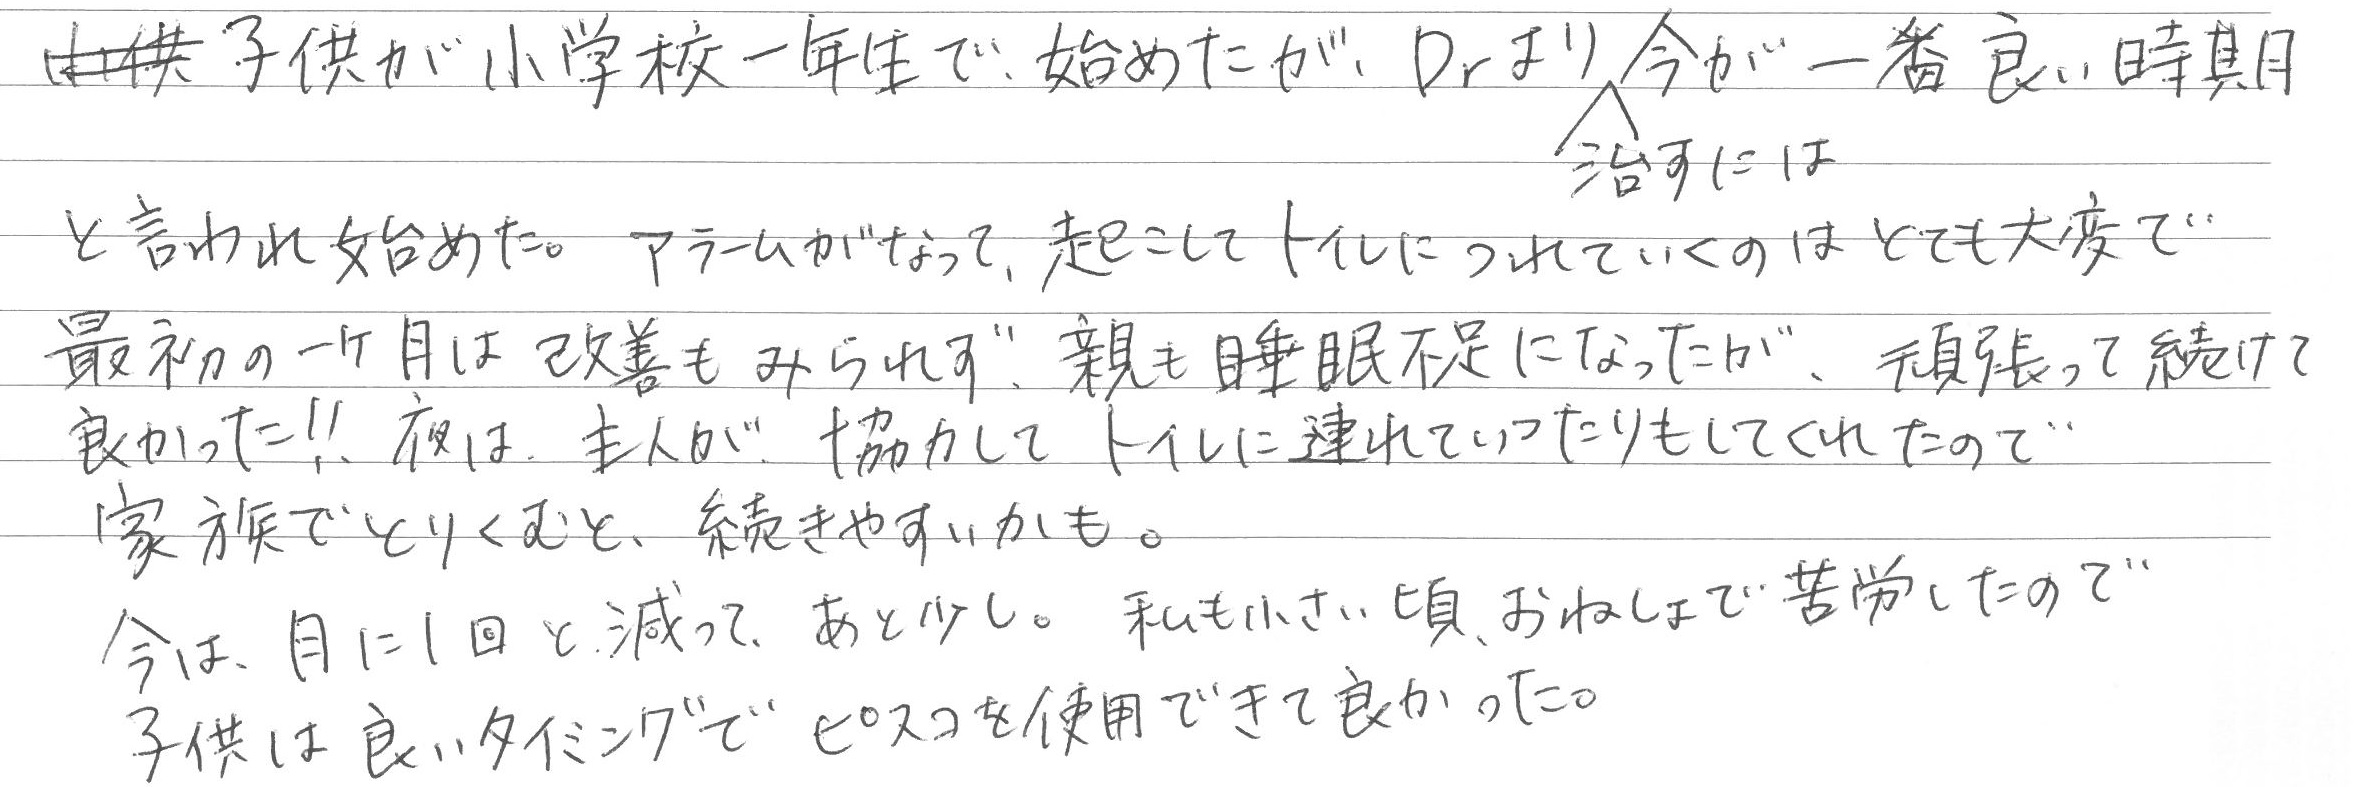 子供が小学校一年生で、始めたが、Drより治すには今が一番良い時期
と言われ始めた。アラームがなって、起こしてトイレにつれていくのはとても大変で
最初の一ケ月は改善もみられず、親も睡眠不足になったが、頑張って続けて
良かった!! 夜は、主人が、協力してトイレに連れていったりもしてくれたので
家族でとりくむと、続きやすいかも。
今は、月に1回と減って、あと少し。私も小さい頃、おねしょで苦労したので
子供は良いタイミングでピスコを使用できて良かった。